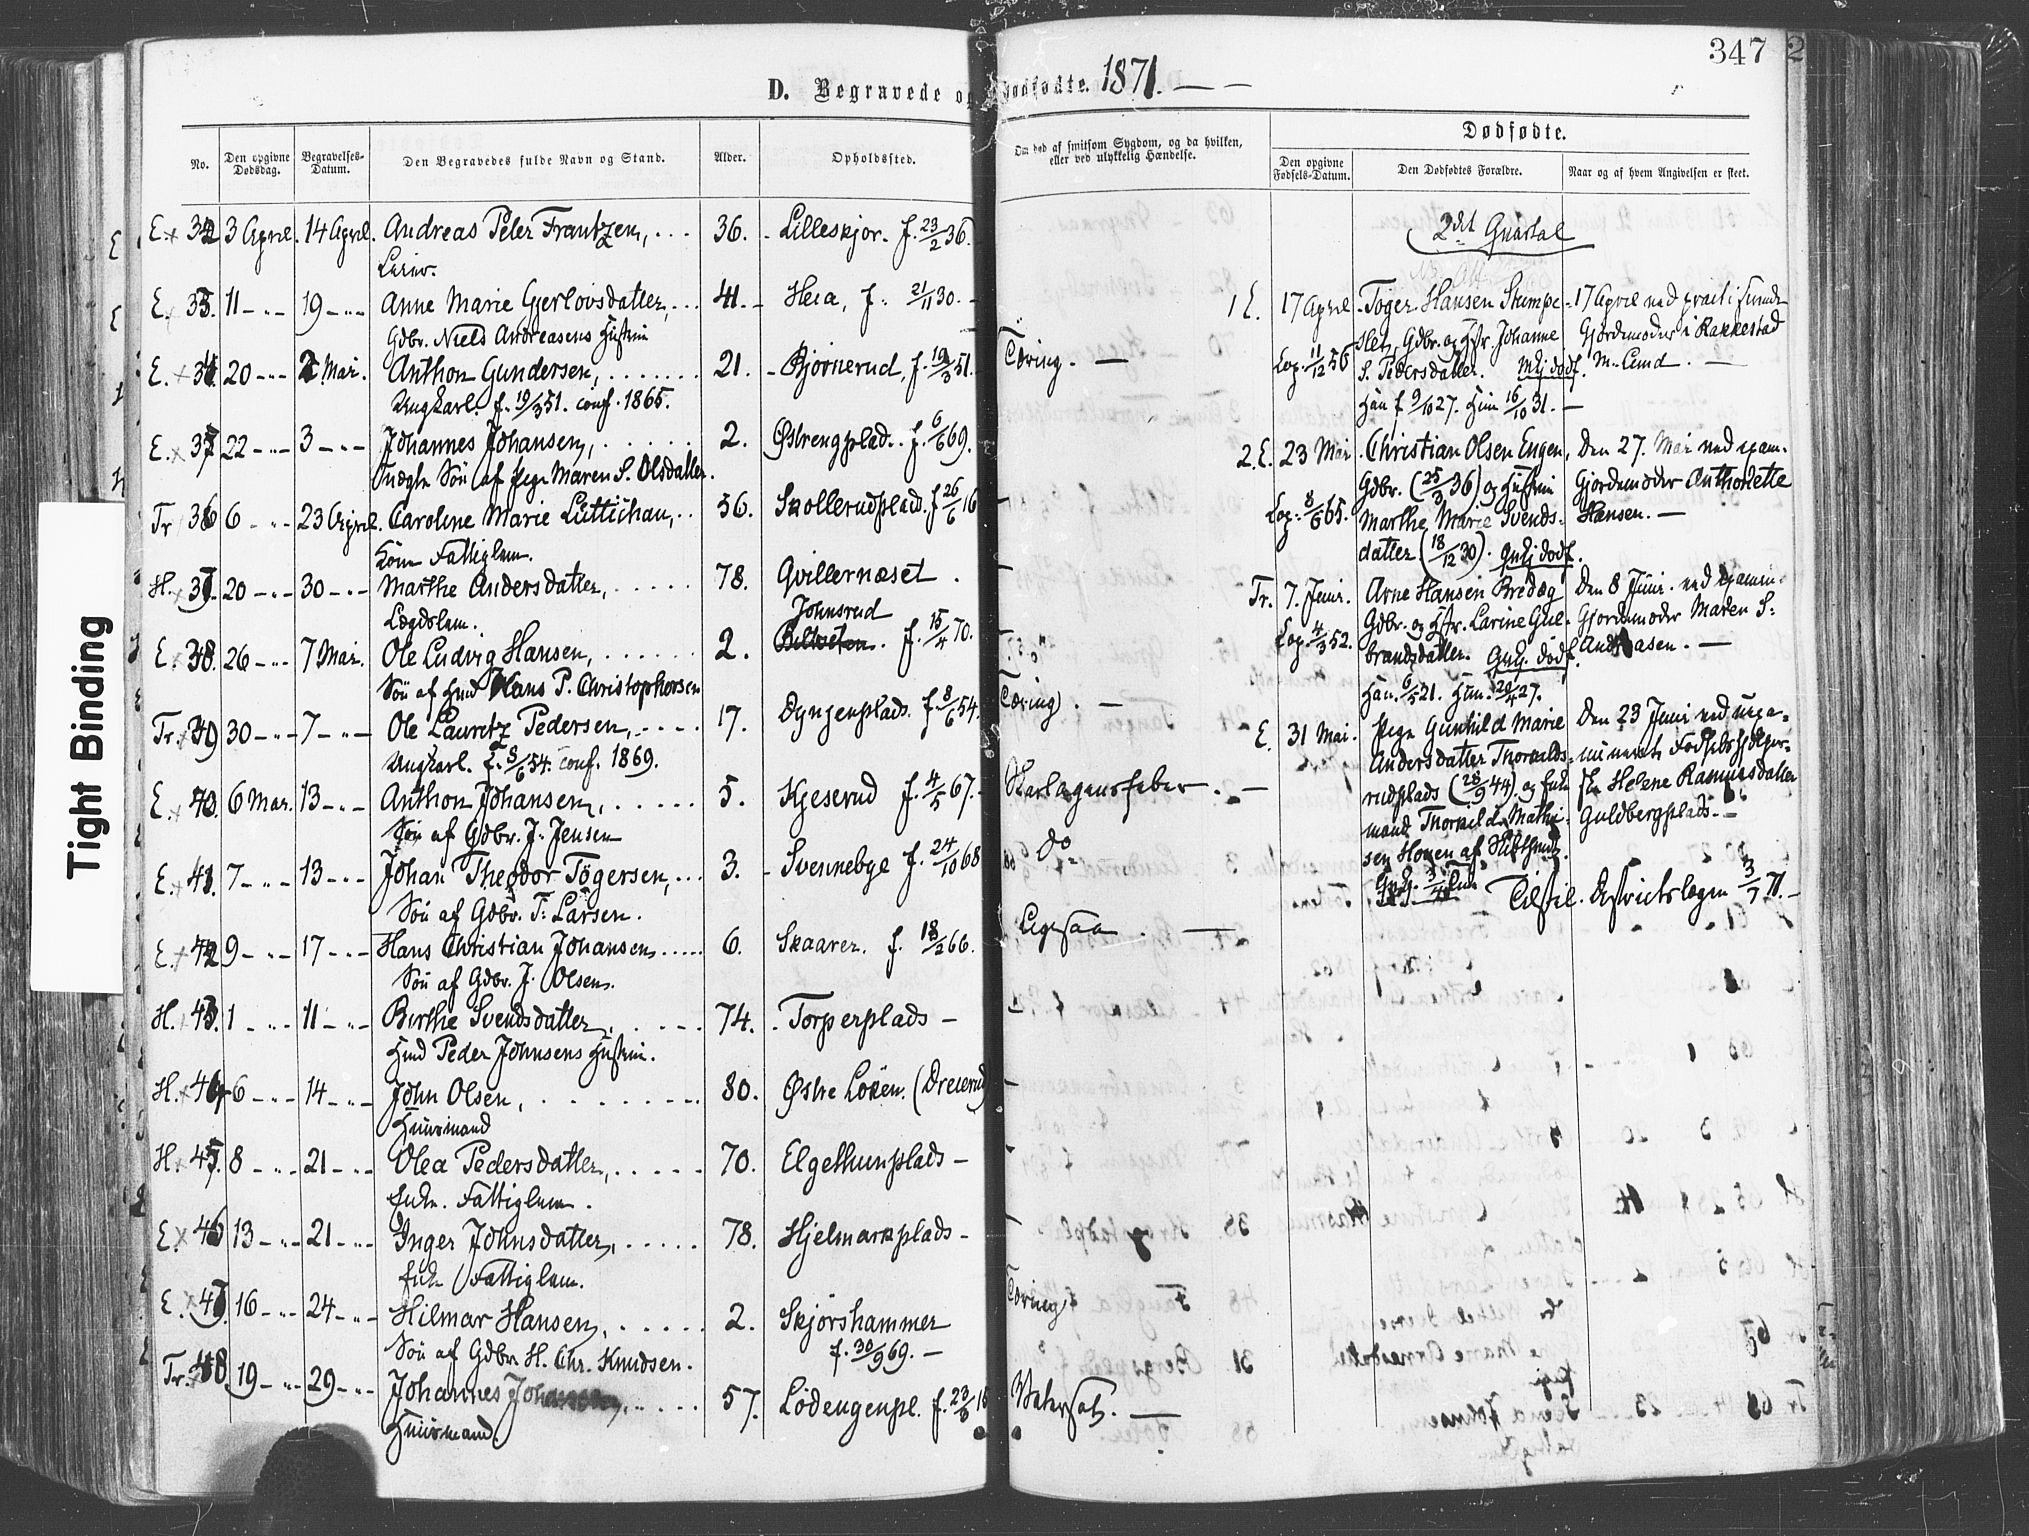 347
2
D. Begravede og Dødfødte. 1871. — —
No.
Den opgivne Dødsdag.
Begravelses-Datum.
Den Begravedes fulde Navn og Stand.
Alder.
Opholdssted.
Om død af smitsom Sygdom, og da hvilken, eller ved ulykkelig Hændelse.
Dødfødte.
Den opgivne Fødsels-Datum.
Den Dødfødtes Forældre.
Naar og af hvem Angivelsen er skeet.
Tight Binding
E. 3 April. 14 April. Andreas Peter Frantzen, ... 36. - Lilleskjor. f. 23/2 36.
E. 11 - " - 19 - " - Anne Marie Gjerlovsdatter, ... 41. - Heia, f. 21/11 30. -
Gdbr. Niels Andreasens Hustru
E. 20 - " - 2 Mai. Anthon Gundersen, ... 21. - Bjørnerud, f. 19/3 51. Tæring. —
Ungkarl. f. 19/3 51. conf. 1865.
E. 22 - " - 3 - " - Johannes Johansen, ... 2. Østrengplad. f. 6/6 69.
Uægte Søn af Pige Maren S. Olsdatter.
Tr 36 6 - " - 23 April. Caroline Marie Lüttichau, .. 56. Skollerudplad. f 26/6 16 —
Lem Fattiglem.
H. 37. 20 - " - 30 - " - Marthe Andersdatter, ... 78. Gvillernæset . —
Lægdslem.
Johnsrud
E. 38. 26 - " - 7 Mai. Ole Ludvig Hansen, ... 2. f. 15/4 70.
Søn af Hmd Hans P. Christophersen
Tr. 39 30 - " - 7 - " - Ole Lauretz Pedersen, ... 17. Dyngenplads. f. 8/6 54. Tæring. —
Ungkarl. f. 8/6 54. conf. 1869.
E. 40. 6 Mai. 13 - " - Anthon Johansen, ... 5. Kjeserud f. 4/5 67. - Skarlagensfeber. —
Søn af Gdbr. J. Jensen
E. 41. 7 - " - 13 - " - Johan Theodor Tøgersen, ... 3. - Svennebye f. 24/10 68 do
Søn af Gdbr. T. Larsen.
E. 42 9 - " - 17 - " - Hans Christian Johansen ... 6. Skaarer. f. 18/2 66. Ligesaa . —
Søn af Gdbr. J. Olsen.
H. 43. 1 - " - 11 - " - Birthe Svendsdatter, ... 74. - Torperplads -
Hmd Peder Johnsens Hustru.
H. 44 6 - " - 14 - " - John Olsen, ... 80. Østre Loken. (Dreierud) —
Huusmand
H. 45. 8 - " - 21 - " - Olea Pedersdatter, ... 70. Elgethunplads -
Enke. Fattiglem.
E. 46 13 - " - 21 - " - Inger Johnsdatter, ... 78. Hjelmarkplads -
Enke Fattiglem.
E. 47. 16 - " - 24 - " - Hilmar Hansen, ... 2. Skjørshammer Tæring
Søn af Gdbr. H. Chr. Knudsen. f. 30/9 69. -
Tr. 48. 19 - " - 29 - " - Johannes Johansen, ... 57. Lødengenpl. f. 23/ Vatersot. —
Huusmand.
2det Quartal
1 E. 17 April - Toger Hansen Stumpe-
slet, Gdbr. og Hstr. Johanne
Cop. 11/12 56 S. Pedersdatter.
Han f 9/10 27. Hun 16/10 31. -
17 April ved
Gjordemoder i Rakkestad
M. Lund. —
2. E. 23 Mai Christian Olsen Engen,
Gdbr. (25/3 36) og Hustru
Cop. 8/6 65. Marthe Marie Svends-
datter (18/12 30).
Den 27. Mai ved exam.
Gjordemoder Anthonette
Hansen. —
Tr. 7. Juni. Arne Hansen Bredæg
Gdbr. og Hstr. Larine Gul-
Cop. 4/3 52. brandsdatter.
Han. 6/5 21. Hun. 20/4 27.
Den 8 Juni. ved examin.
Gjordemoder Maren S.
Andreasen. —
E. 31 Mai. Pige Gunhild Marie
Andersdatter Thorkilds-
rudplads (28/9 44). og
mand Thorkild Mathi-
sen
Den 23 Juni ved uexa-
mineret Fødselshjelper-
ske Helene Rasmusdatter
Guldbergplads -
Tilstil. Districtslægen 3/7 71. -